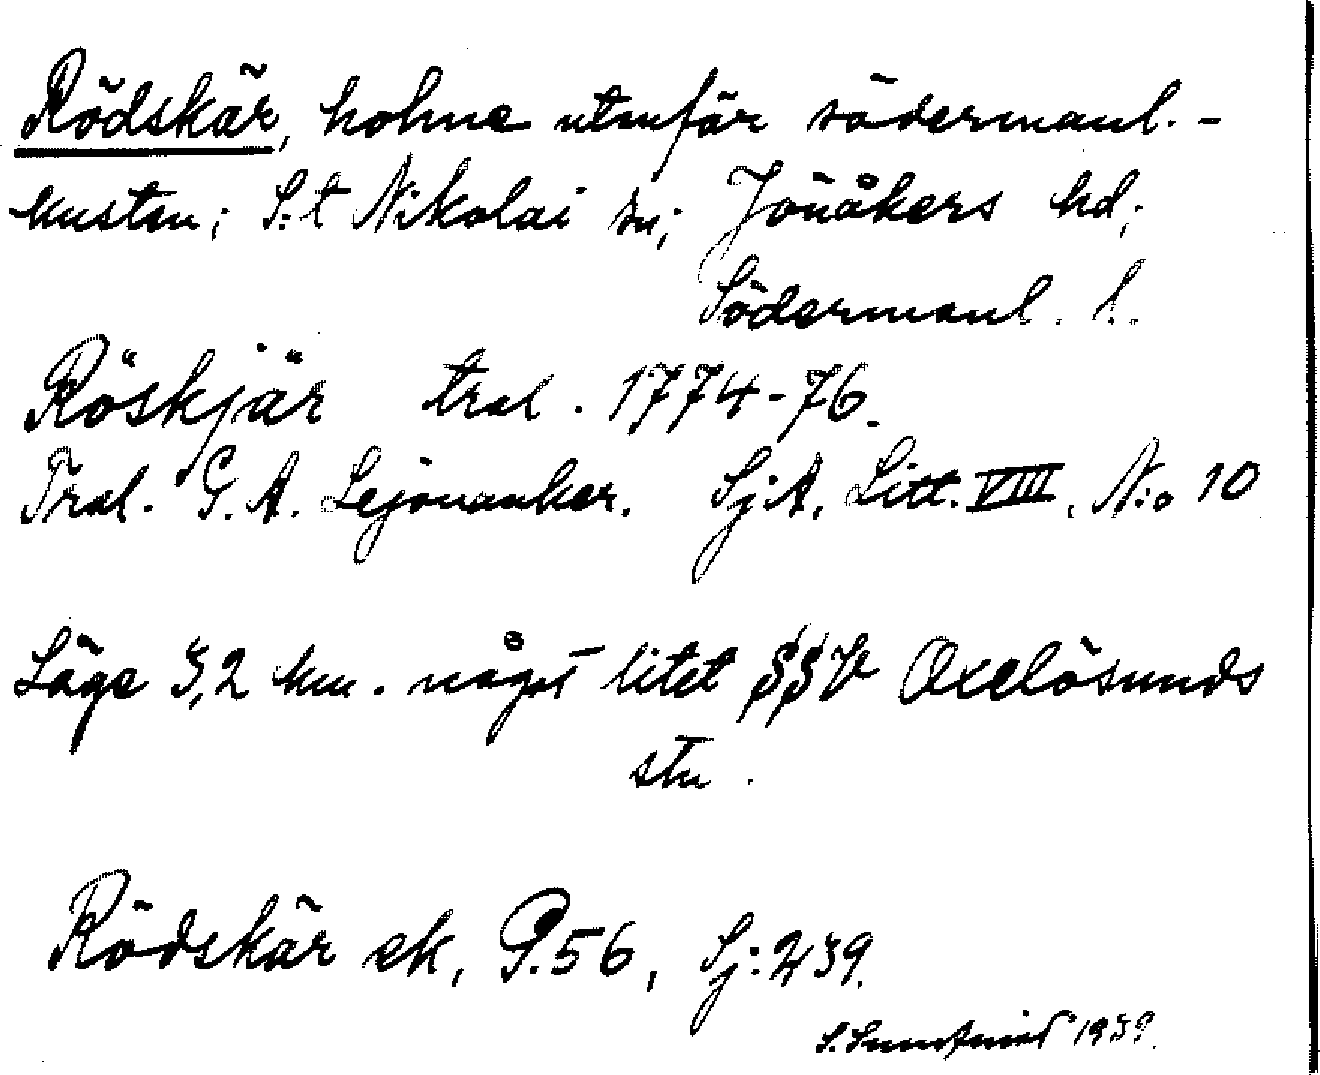 Rödskär, holme utanför södermanl.-
kusten; S:t Nikolai sn; Jönåkers hd;
Södermanl. l.
Röskjär tral. 1774-76.
Tral. G. A. Lejonanker. Sj.A, Litt. VIII, N:o 10
Läge 3,2 km. något litet SSV Oxelösunds
stn.
Rödskär ek, G.56, Sj:239.
1939.